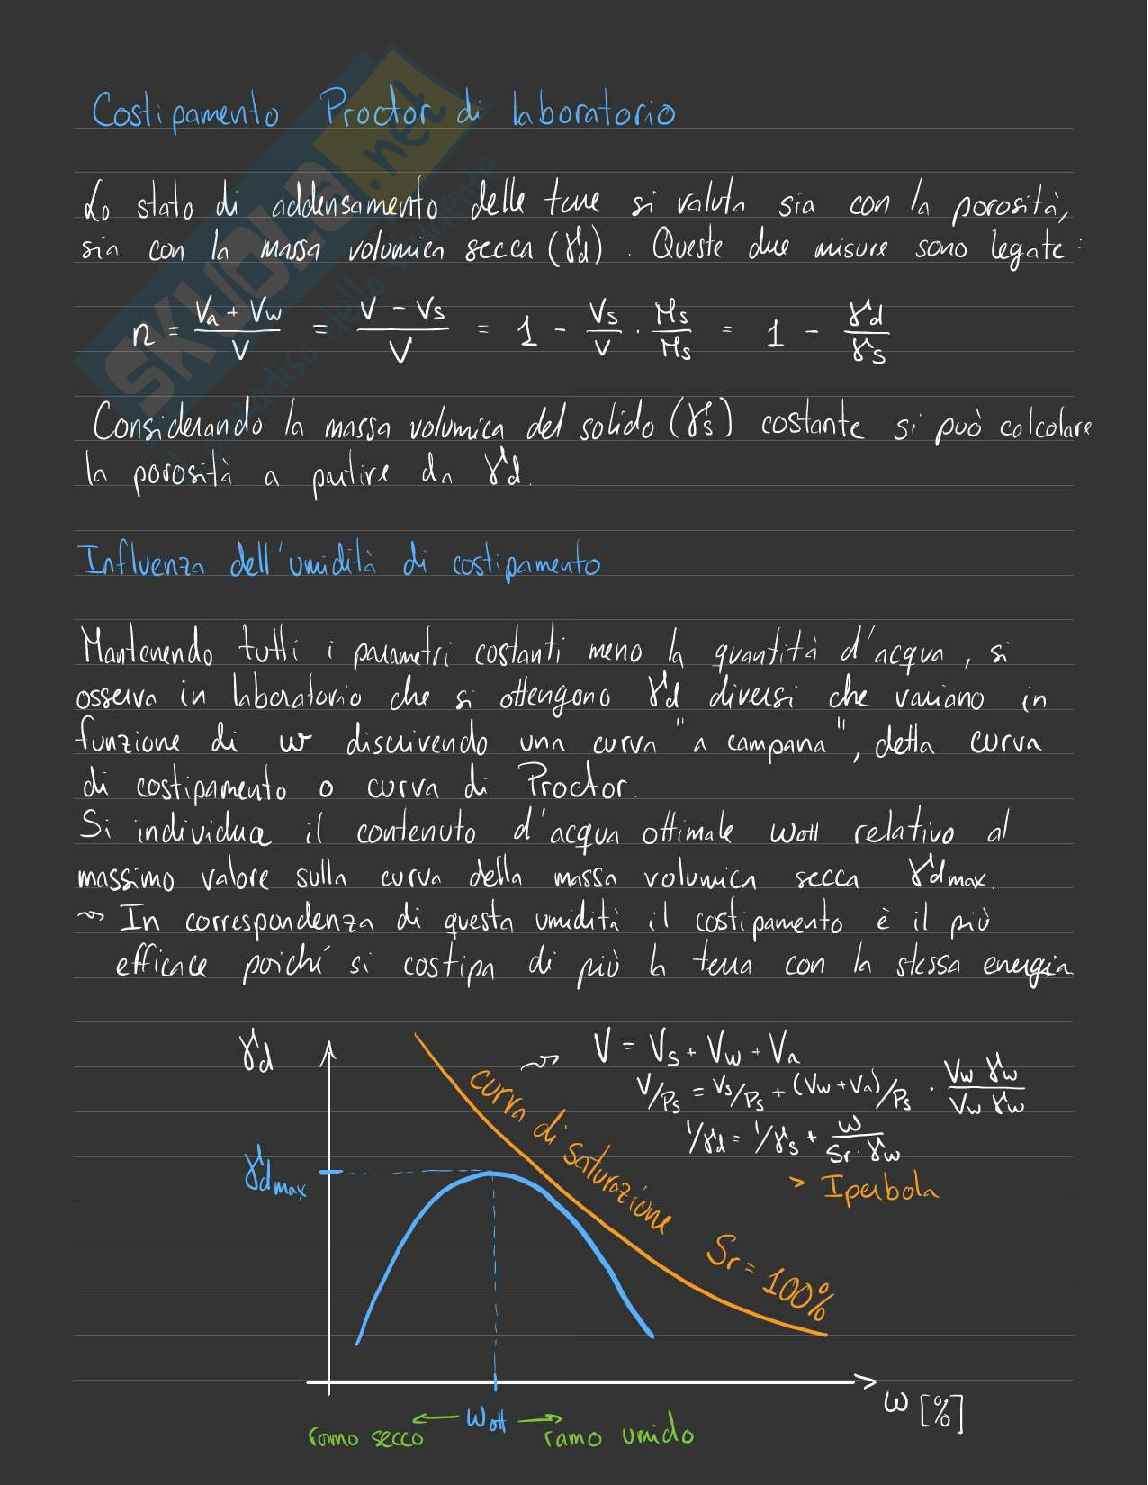 Costipamento Proctor di laboratorio
Lo stato di addensamento delle terre si valuta sia con la porosità,
sia con la massa volumica secca (γd). Queste due misure sono legate:
n = (Va + Vw)/V = (V - Vs)/V = 1 - Vs/V · Ms/Ms = 1 - γd/γs
Considerando la massa volumica del solido (γs) costante si può calcolare
la porosità a partire da γd.
Influenza dell'umidità di costipamento
Mantenendo tutti i parametri costanti meno la quantità d'acqua, si
osserva in laboratorio che si ottengono γd diversi che variano in
funzione di w descrivendo una curva "a campana", detta curva
di costipamento o curva di Proctor.
Si individua il contenuto d'acqua ottimale wott relativo al
massimo valore sulla curva della massa volumica secca γdmax.
~> In corrispondenza di questa umidità il costipamento è il più
efficace poiché si costipa di più la terra con la stessa energia
γd
V = Vs + Vw + Va
V/Ps = Vs/Ps + (Vw + Va)/Ps · Vw γw/Vw γw
1/γd = 1/γs + w/(Sr · γw)
> Iperbola
curva di saturazione Sr = 100%
γdmax
w [%]
ramo secco ← wott → ramo umido
SKUOLA.net